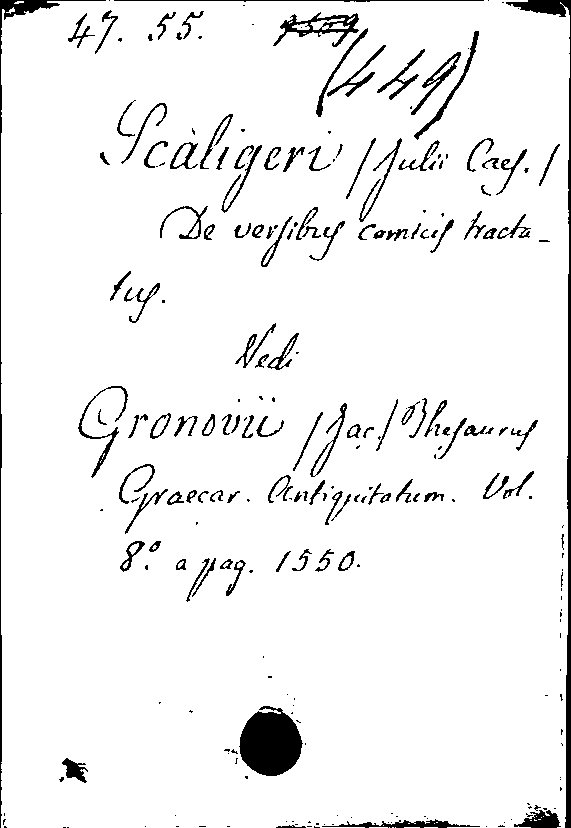 47. 55.
(449)
Scàligeri /Julii Caes./
De versibus comicis tracta-
tus.
Vedi
Gronovii /Jac./ Thesaurus
Graecar. Antiquitatum. Vol.
8.º a pag. 1550.